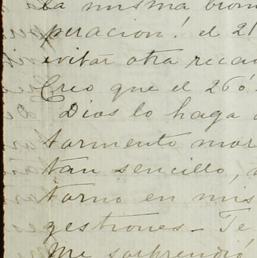 la misma
peracion! el 21
evitar otra reca
Creo que el 26 ó
Dios lo haga
tormento mor
tan sencillo,
torno en mis
gestiones_ Te
Me sorprendió